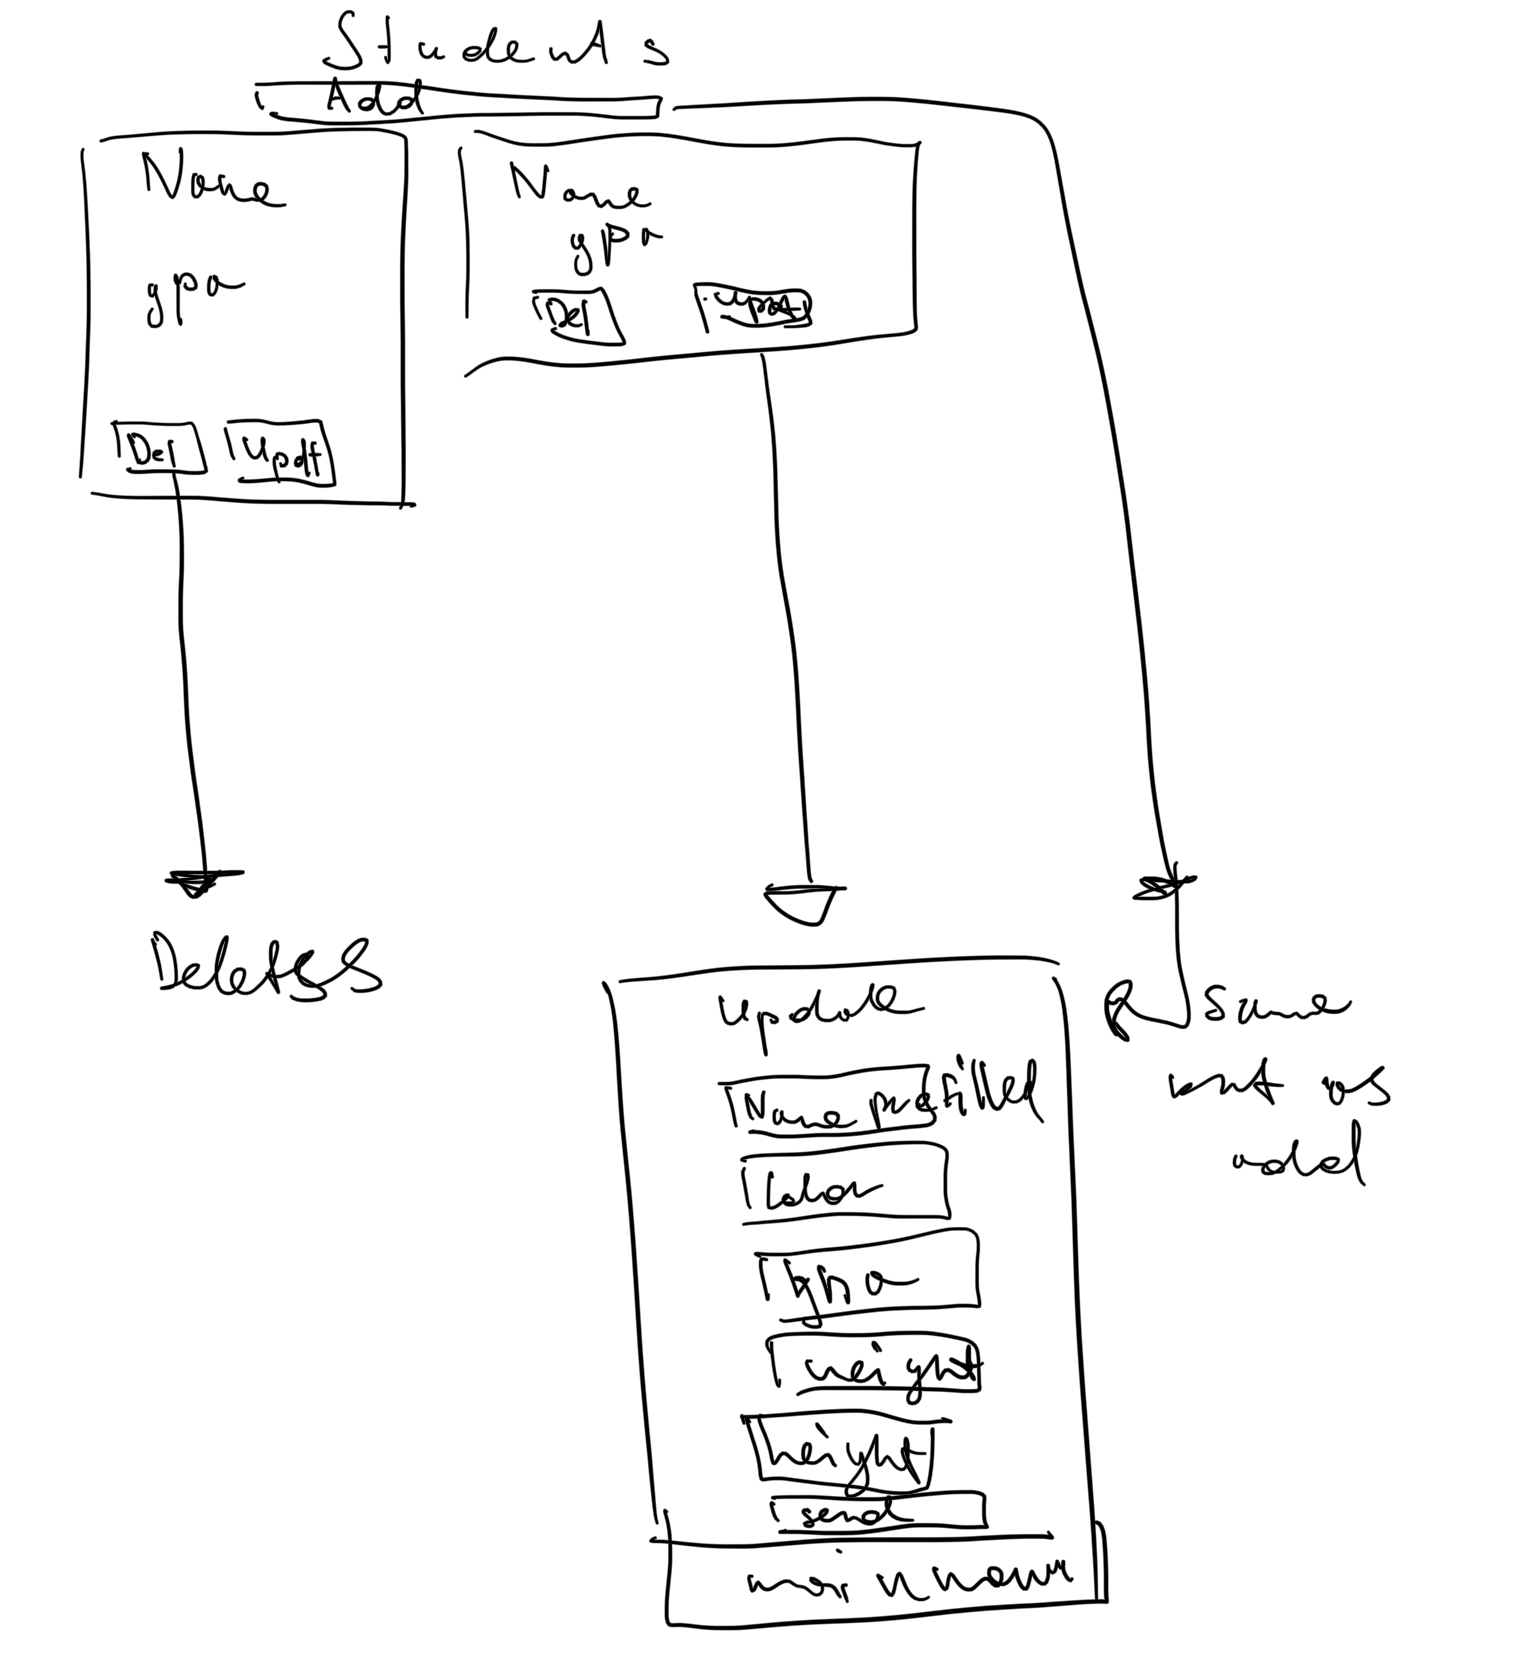 Students
Add
Name
gpa
Del
Updt
Name
gpa
Del
Deletes
Update
Name prefilled
Color
gpa
weight
height
send
Same
as
add